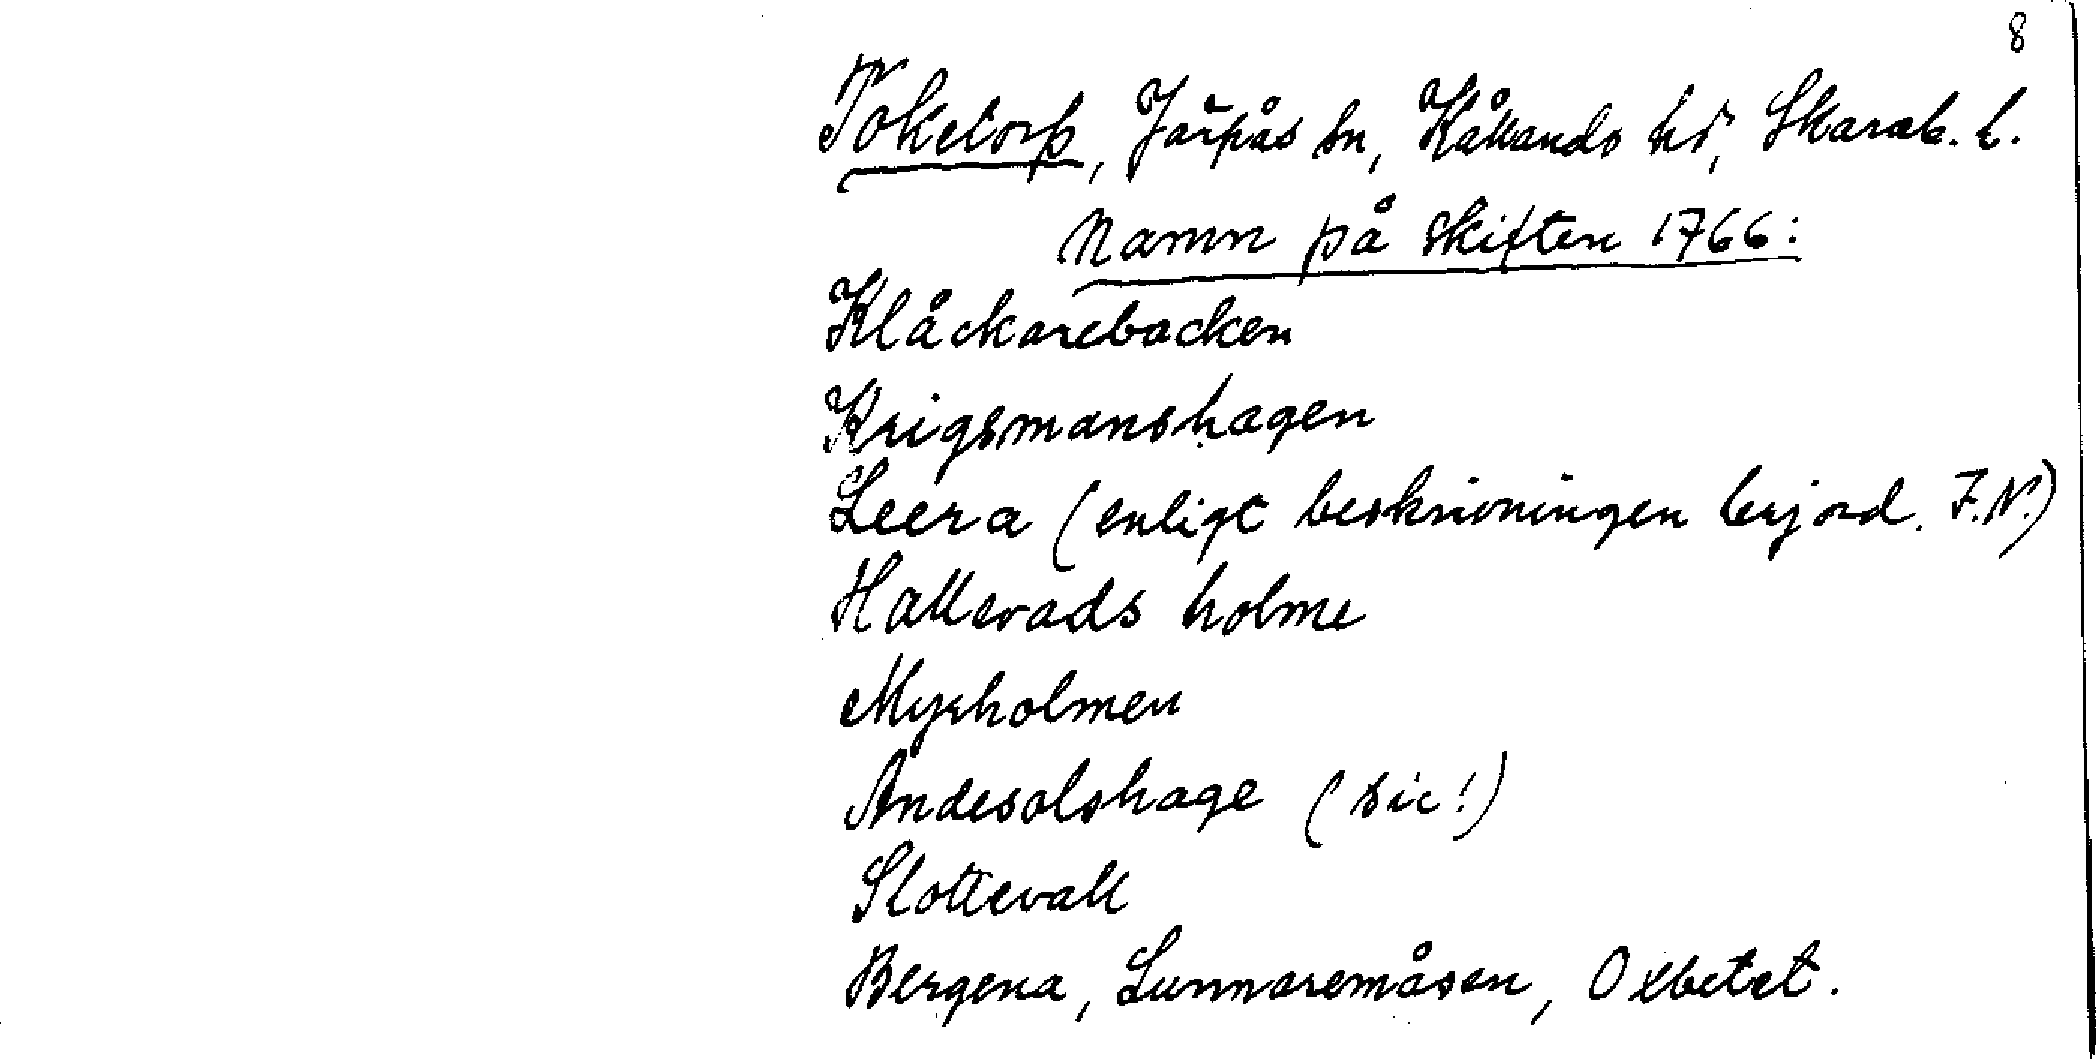 8
Toketorp, Järpås sn, Kållands hd, Skarab. l.
Namn på skiften 1766:
Klåckarebacken
Krigsmanshagen
Leera (enligt beskrivningen lerjord. F.N.)
Hallevads holme
Myrholmen
Andesolshage (sic!)
Slottevall
Bergena, Sunnaremåsen, Oxbetet.